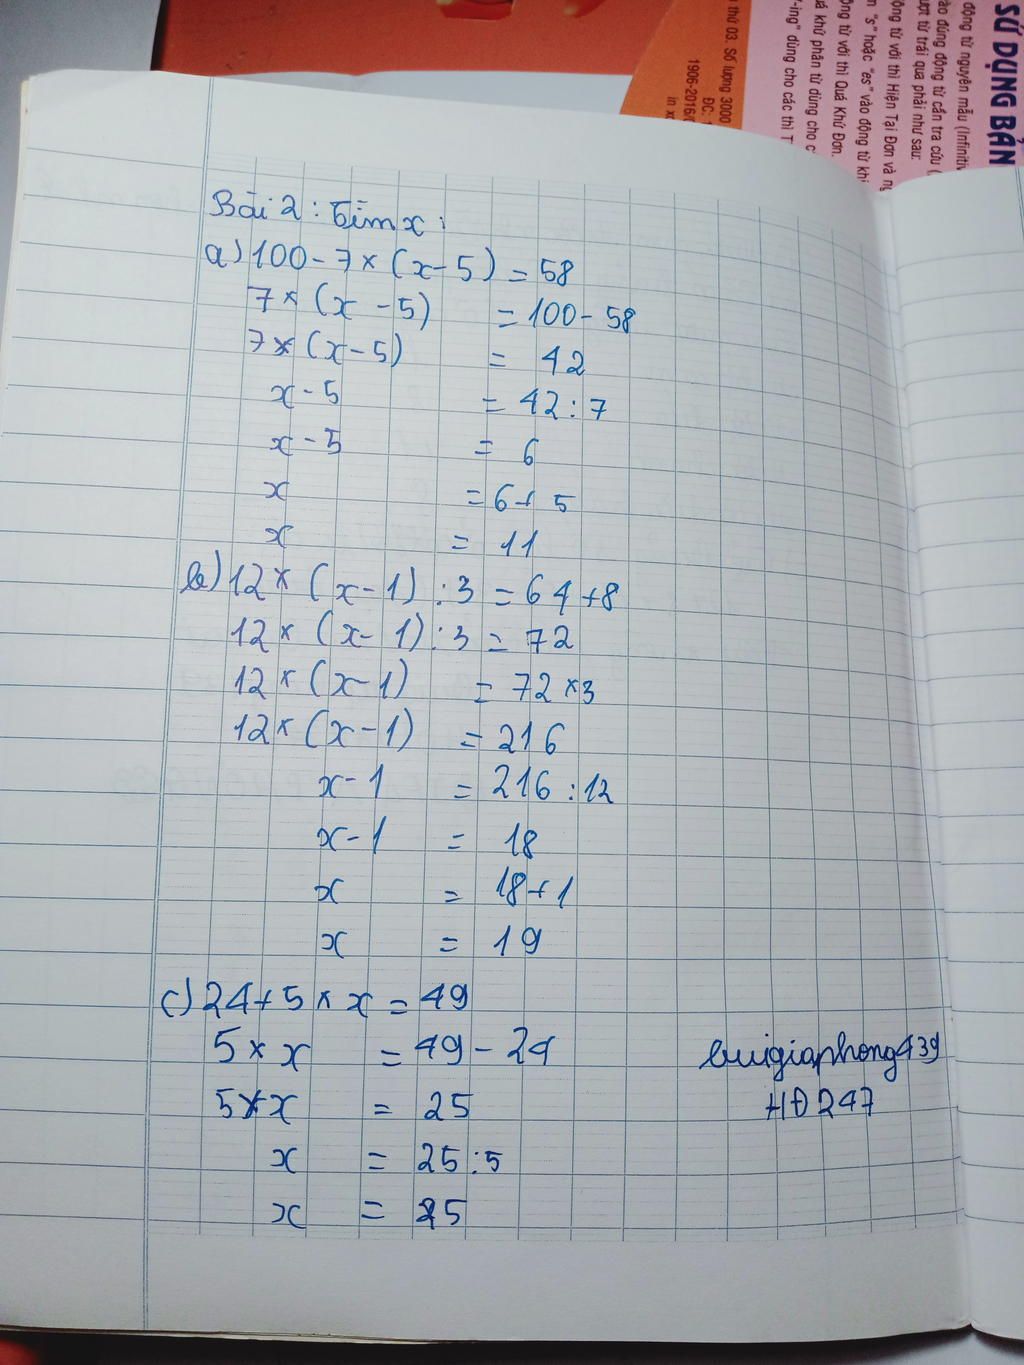 SỬ DỤNG BẢN
động từ nguyên mẫu (Infinitiv
ào đúng động từ cần tra cứu (
ượt từ trái qua phải như sau:
ộng từ với thì Hiện Tại Đơn và n
m "s" hoặc "es" vào động từ khi
ộng từ với thì Quá Khứ Đơn.
uá khứ phân từ dùng cho c
"-ing" dùng cho các thì T
thứ 03. Số lượng 3000
ĐC:
1906-2016/
in x
Bài 2: Tìm x:
a) 100 - 7 × (x - 5) = 58
7 × (x - 5) = 100 - 58
7 × (x - 5) = 42
x - 5 = 42 : 7
x - 5 = 6
x = 6 + 5
x = 11
b) 12 × (x - 1) : 3 = 64 + 8
12 × (x - 1) : 3 = 72
12 × (x - 1) = 72 × 3
12 × (x - 1) = 216
x - 1 = 216 : 12
x - 1 = 18
x = 18 + 1
x = 19
c) 24 + 5 × x = 49
5 × x = 49 - 24
5 × x = 25
x = 25 : 5
x = 25
buigiaphong439
HĐ247